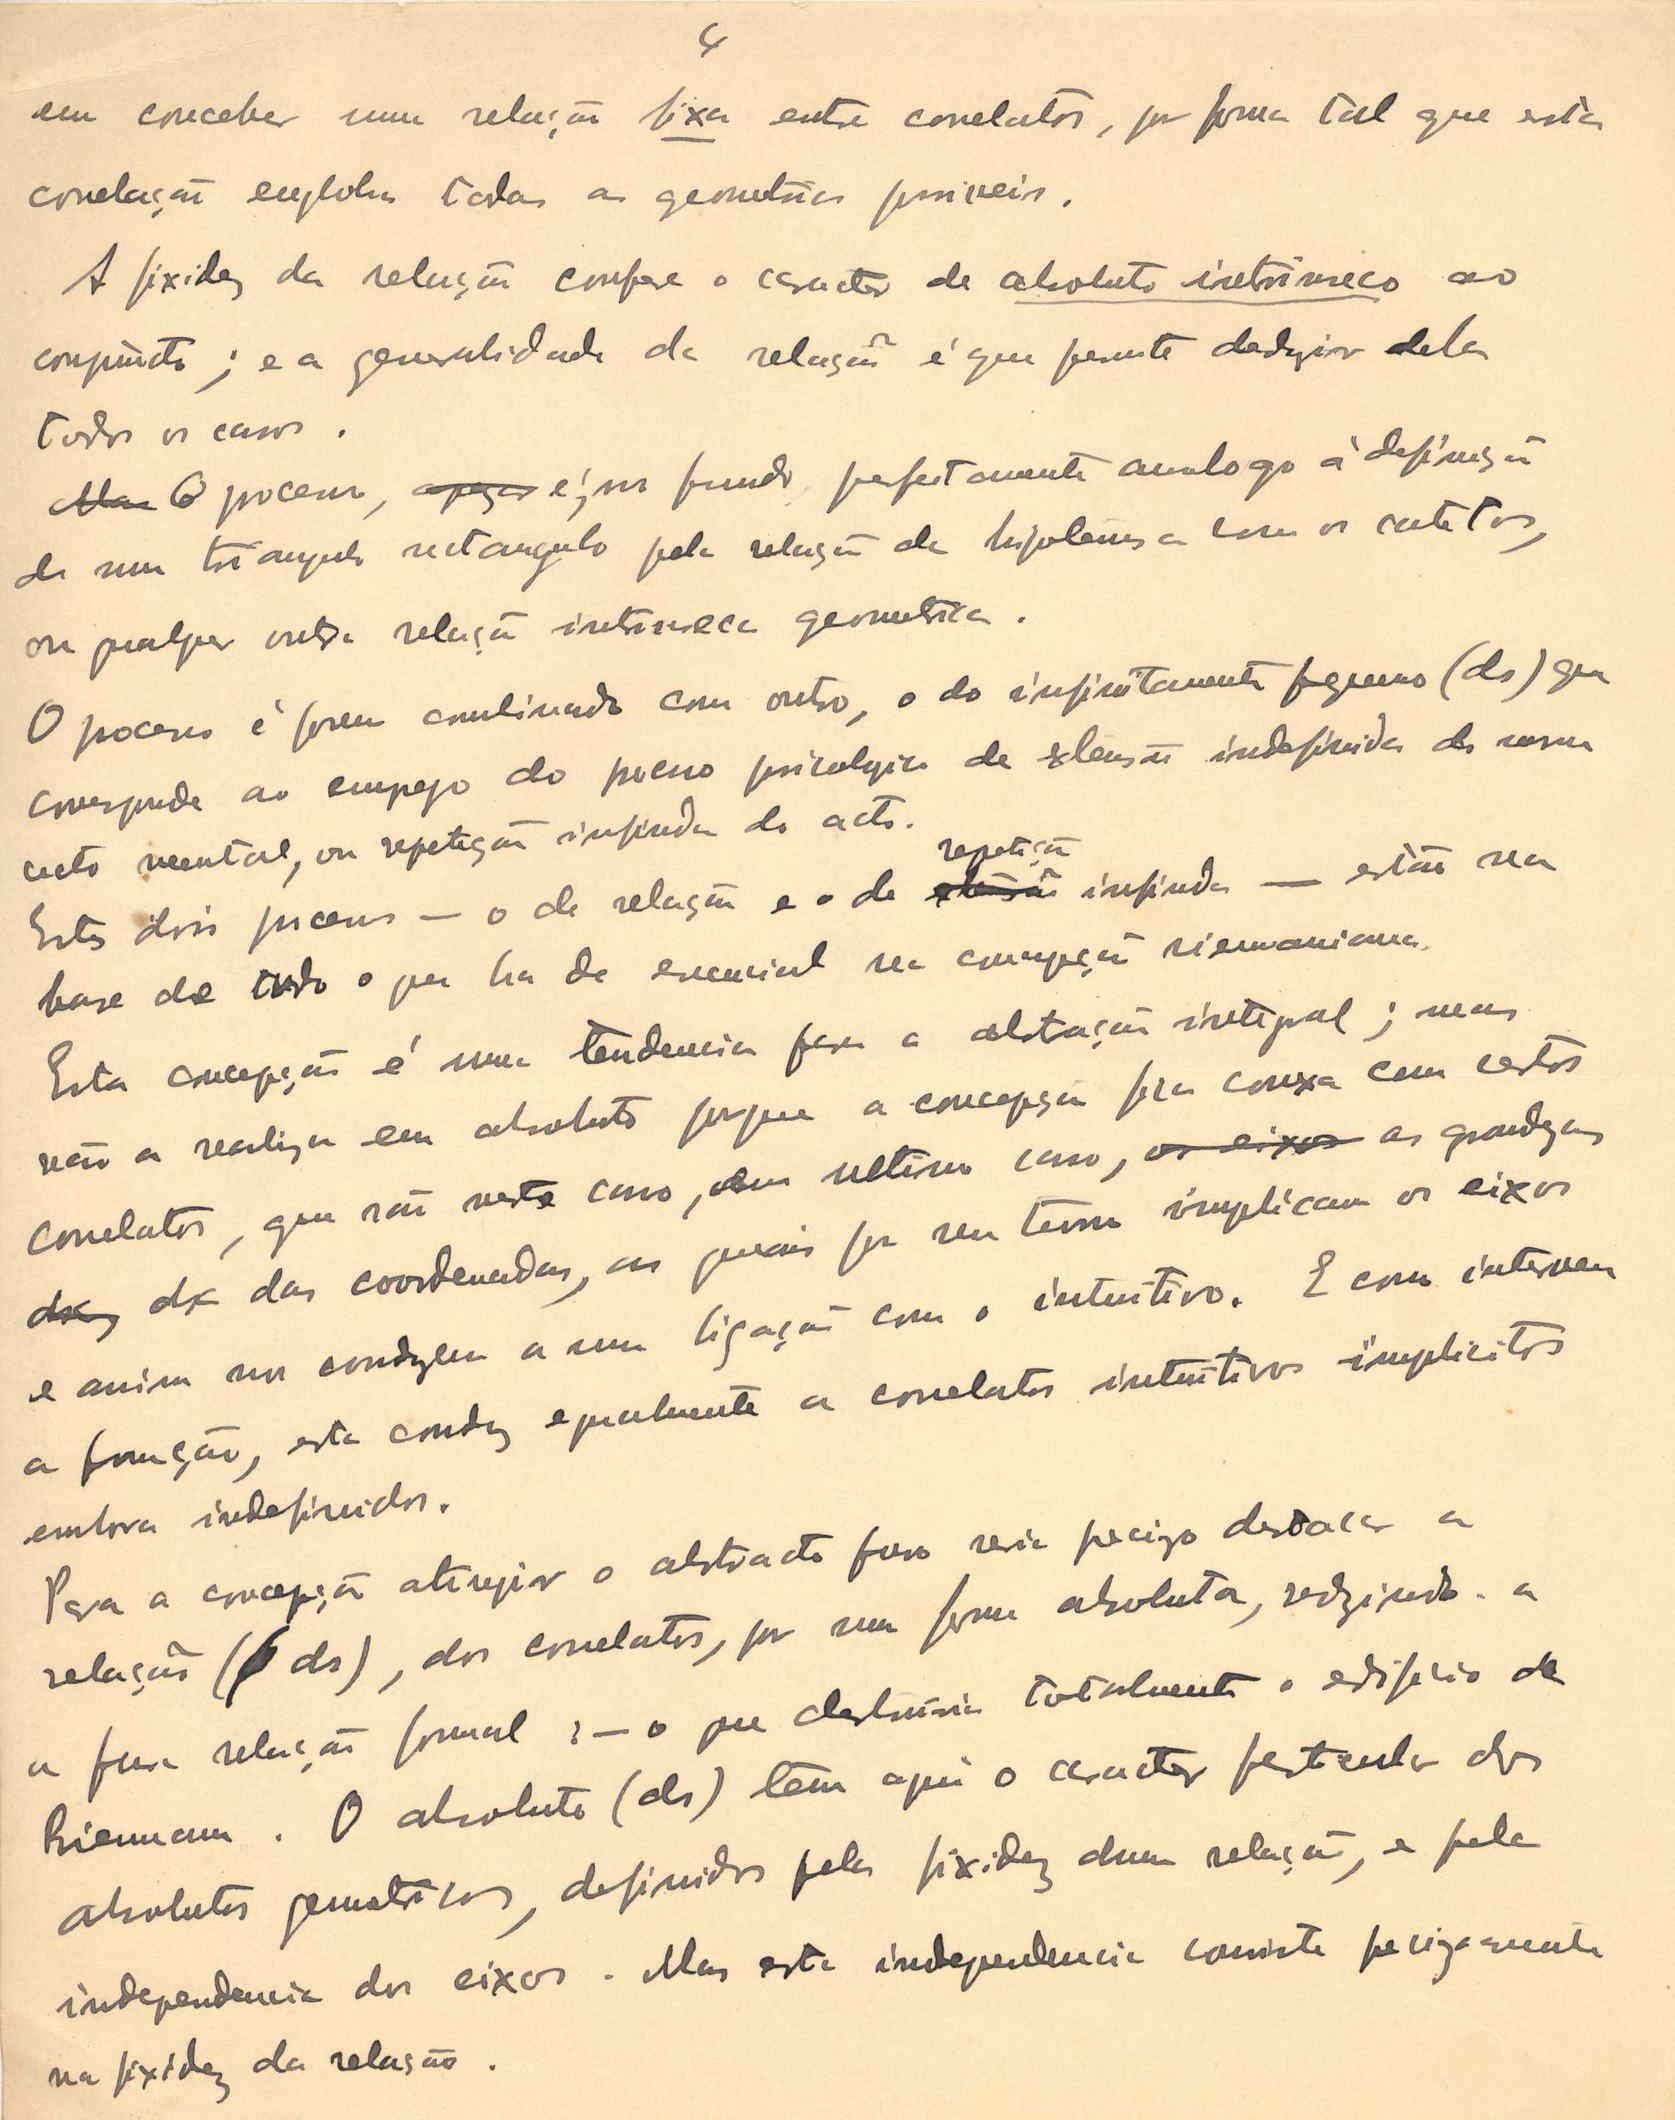 4
em conceber uma relação fixa entre correlatos, por forma tal que esta
correlação engloba todas as geometrias possiveis.
A fixidez da relação confere o caracter de absoluto intrinseco ao
conjuncto ; e a generalidade da relação é que permite deduzir dela
todos os casos .
Mas O processo, apezar é, no fundo, perfeitamente analogo á definição
de um triangulo rectangulo pela relação da hipotenusa com os catetos,
ou qualquer outra relação intrinseca geometrica .
O processo é porem combinado com outro, o do infinitamente pequeno (ds) que
corresponde ao emprego do processo psicologico de extensão indefinida do mesmo
acto mental, ou repetição infinda do acto.
repetição
Estes dois processos — o da relação e o de extensão infinda — estão na
base de tudo o que ha de essencial na concepção riemaniana.
Esta concepção é uma tendencia para a abstração integral ; mas
não a realiza em absoluto porque a concepção fica conexa com certos
correlatos, que são neste caso, em ultimo caso, os eixos as grandezas
dx, dx das coordenadas, as quais por seu turno implicam os eixos
e assim nos conduzem a uma ligação com o intuitivo. E como intervem
a função, esta conduz egualmente a correlatos intuitivos implicitos
embora indefinidos.
Para a concepção atingir o abstracto puro seria preciso destacar a
relação ( ds) , dos correlatos, por uma forma absoluta, reduzindo-a
a pura relação formal : — o que destruiria totalmente o edificio de
Riemann . O absoluto (ds) tem aqui o caracter particular dos
absolutos geometricos, definidos pela fixidez duma relação, e pela
independencia dos eixos . Mas esta independencia consiste precizamente
na fixidez da relação .